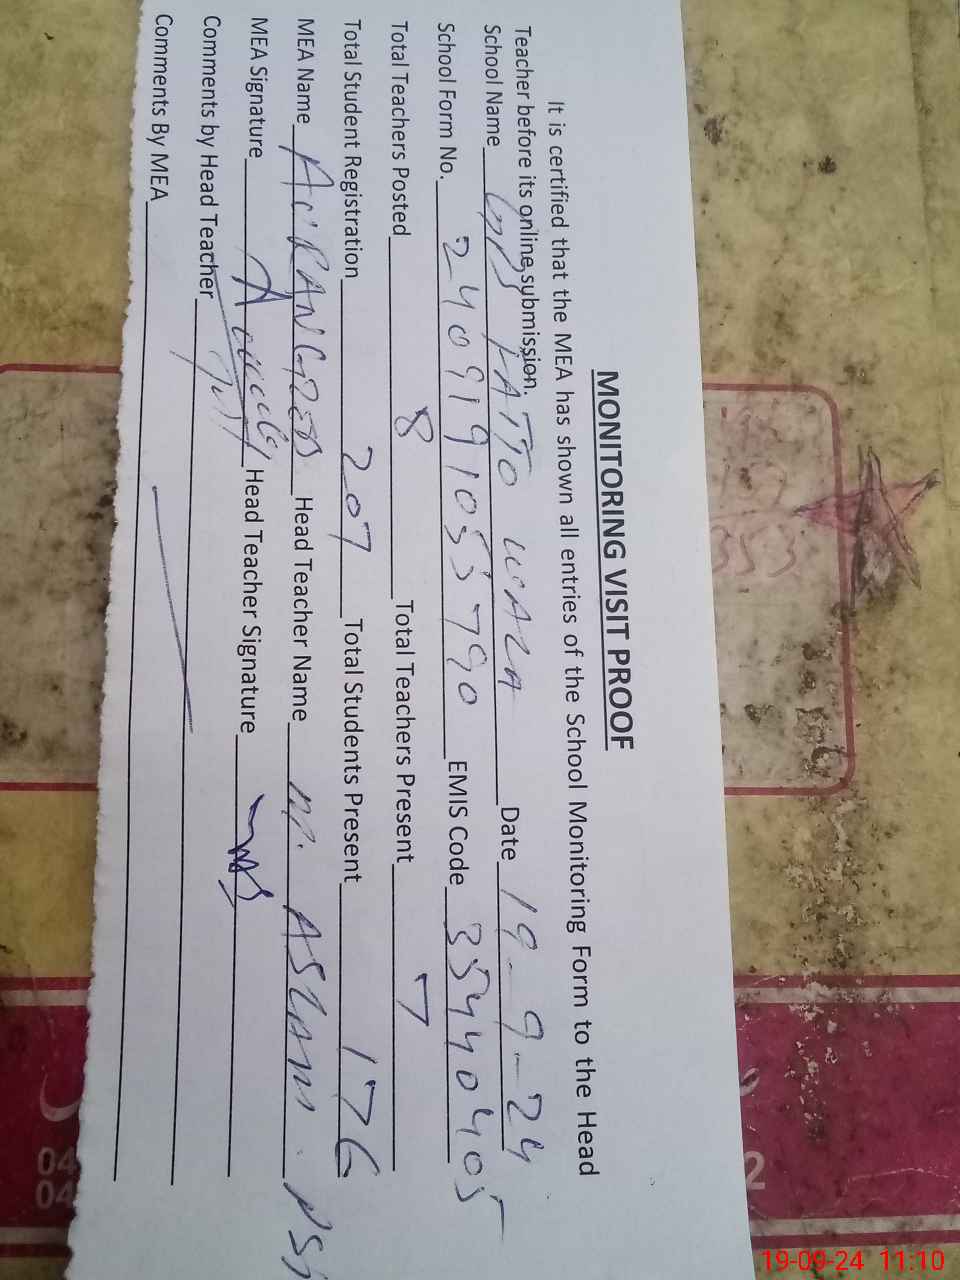 MONITORING VISIT PROOF
It is certified that the MEA has shown all entries of the School Monitoring Form to the Head
Teacher before its online submission.
School Name GPS WALA Date 19-9-24
School Form No. 2409191055790 EMIS Code 35440405
Total Teachers Posted 8 Total Teachers Present 7
Total Student Registration 207 Total Students Present 176
MEA Name Head Teacher Name M. ASLAM.
MEA Signature Head Teacher Signature
Comments by Head Teacher
Comments By MEA
2
04
04
19-09-24 11:10